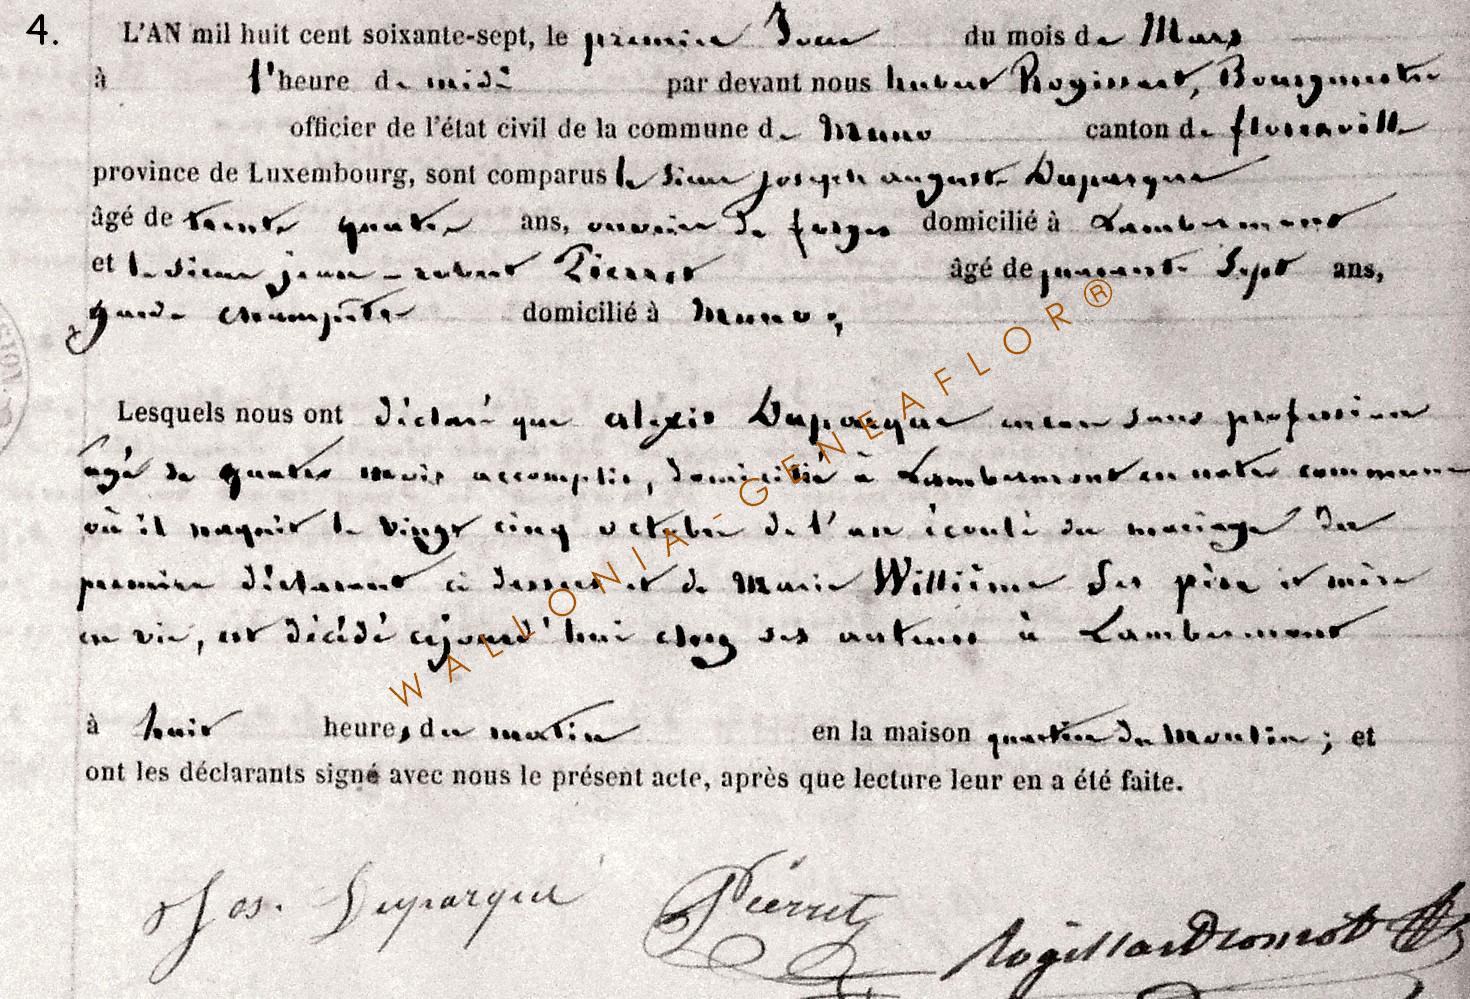 4.
L'AN mil huit cent soixante-sept, le premier Jour du mois de Mars
à l'heure de midi par devant nous hubert Rogissart, Bourgmestre
officier de l'état civil de la commune de Muno canton de florenville
province de Luxembourg, sont comparus le sieur joseph auguste Duparque
âgé de trente quatre ans, ouvrier de forges domicilié à Lambermont
et le sieur jean Pierret âgé de quarante Sept ans,
garde champêtre domicilié à Muno ;
Lesquels nous ont déclaré que alexis Duparque sans profession
agé de quatre mois accomplis, domicilié à Lambermont en notre commune
où il naquit le vingt cinq octobre de l'an écoulé du mariage du
premier déclarant ci dessus et de Marie Willième Ses père et mère
en vie, est décédé cejourd'hui chez ses auteurs à Lambermont
à huit heures du matin en la maison quartier du Moulin ; et
ont les déclarants signé avec nous le présent acte, après que lecture leur en a été faite.
Jos. Duparque Pierret Rogissart
WALLONIA-GENEAFLOR®